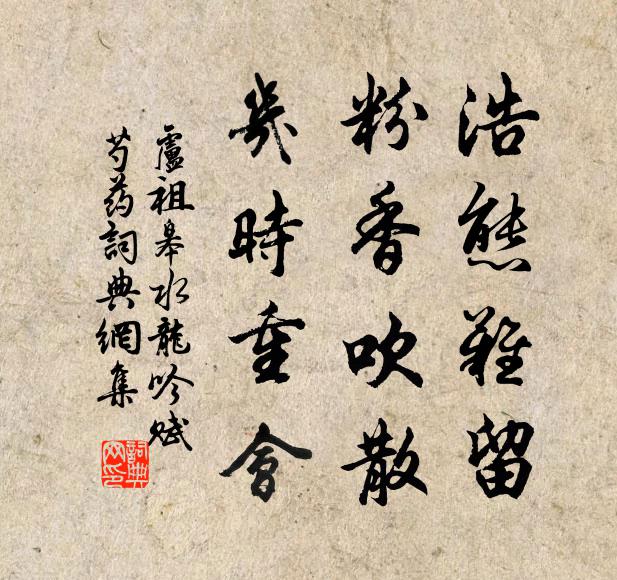 浩態難留
粉香吹散
幾時重會
盧祖皋水龍吟賦
芍药詞典網集
詞典
网印